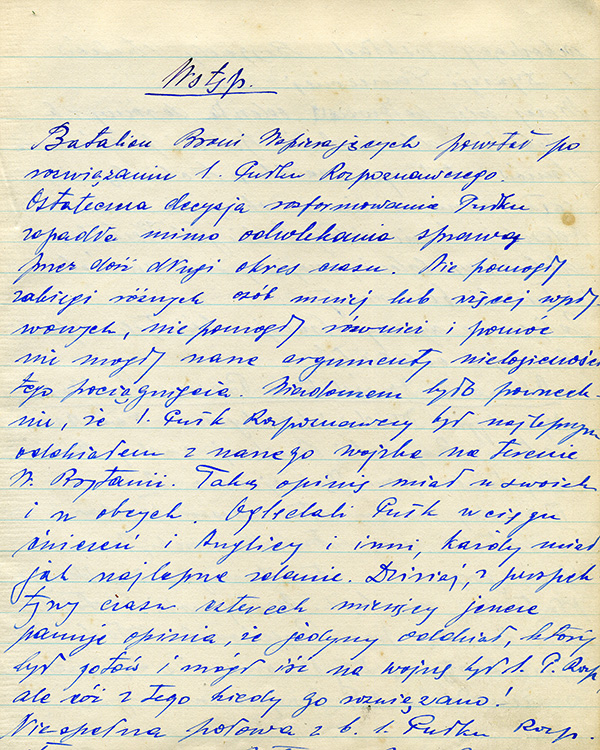 Wstęp.
Batalion Broni Wspierających powstał po
rozwiązaniu 1. Pułku Rozpoznawczego.
Ostateczna decyzja rozformowania Pułku
zapadła mimo odwlekania sprawy
przez dość długi okres czasu. Nie pomogły
zabiegi różnych osób mniej lub więcej wpły
wowych, nie pomogły również i pomóc
nie mogły nasze argumenty nielogiczności
tego pociągnięcia. Wiadomem było powszech-
nie, że 1. Pułk Rozpoznawczy był najlepszym
oddziałem z naszego wojska na terenie
W. Brytanii. Taką opinię miał u swoich
i u obcych. Oglądali Pułk w ciągu
ćwiczeń i Anglicy i inni, każdy miał
jak najlepsze zdanie. Dzisiaj, z perspek
tywy czasu czterech miesięcy jeszcze
panuje opinia, że jedyny oddział, który
był gotów i mógł iść na wojnę był 1. P. Rozp,
ale cóż z tego kiedy go rozwiązano!
Niespełna połowa z b. 1. Pułku Rozp.